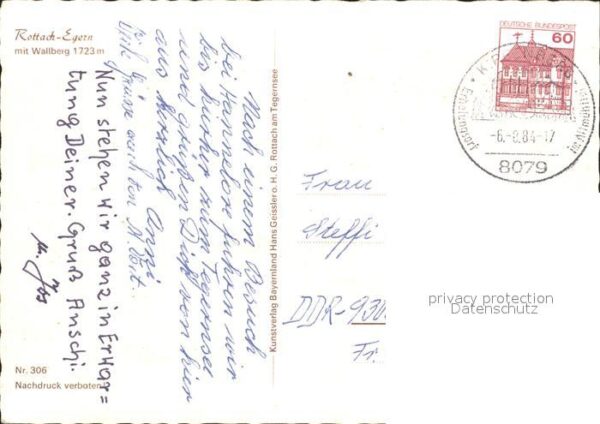 Rottach-Egern
mit Wallberg 1723 m
Nach einem Besuch
bei Hannelore fuhren wir
bis hierher zum Tegernsee
und grüßen Dich von hier
aus herzlich Anni
Viele Grüße
Nun stehen wir ganz in Erhar=
tung Deiner. Gruß Anschi.
Nr. 306
Nachdruck verboten
Kunstverlag Bayernland Hans Geissler o. H. G. Rottach am Tegernsee
DEUTSCHE BUNDESPOST
60
Erholungsort
im Altmühltal
-6.-8.84-17
8079
Frau
Steffi
DDR-930
Fr.
privacy protection
Datenschutz